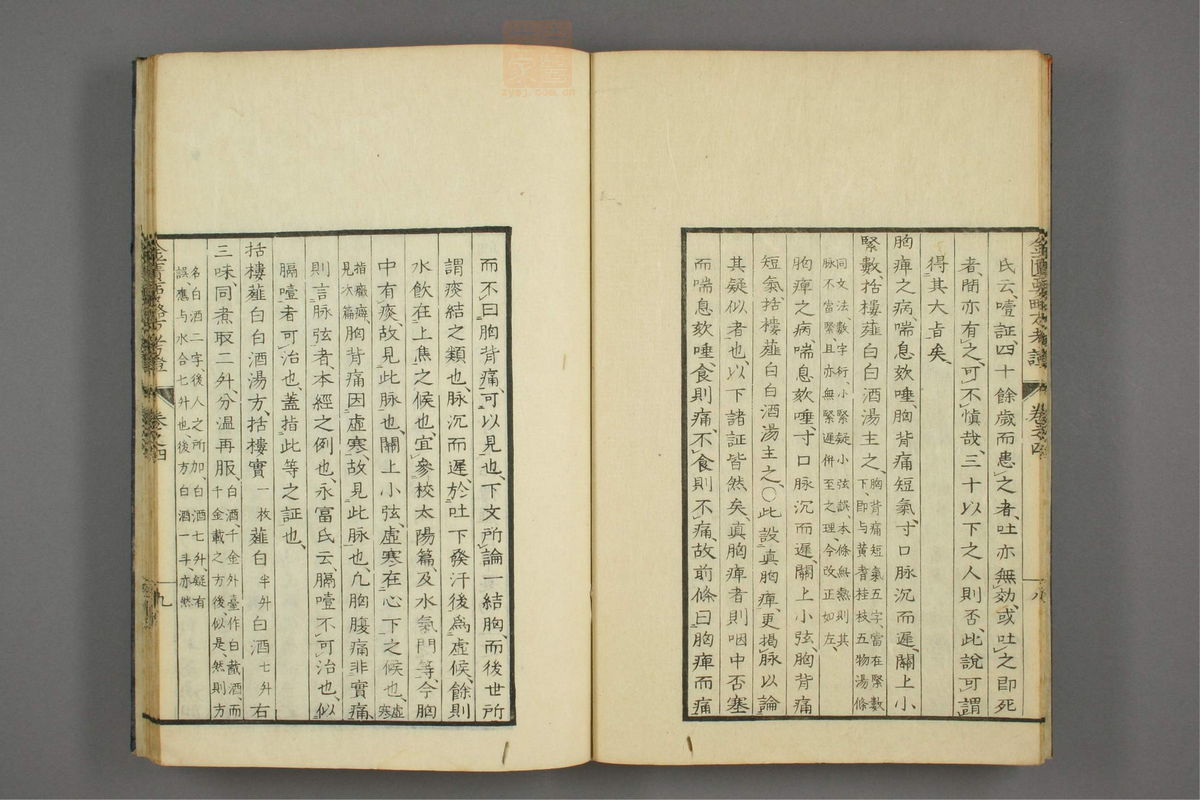 氏云、噎証四十餘歲而患之者、吐亦無効、或吐之即死
者、間亦有之、可不愼哉、三十以下之人則否、此說可謂
得其大旨矣
胸痺之病、喘息欬唾、胸背痛短氣、寸口脉沉而遲、關上小
緊數、括樓薤白白酒湯主之、胸背痛短氣五字、當在緊數下、即与黄耆桂枝五物湯條
同文法、數字衍、小緊疑小弦誤、本條無數則其脉不當緊、且亦無緊遲併至之理、今改正如左、
胸痺之病、喘息欬唾、寸口脉沉而遲、關上小弦、胸背痛
短氣、括樓薤白白酒湯主之、〇此設眞胸痺、更揭脉以論
其疑似者也、以下諸証皆然矣、眞胸痺者則咽中否塞
而喘息欬唾、食則痛、不食則不痛、故前條曰胸痺而痛
金匱要略方考證 卷之四 八
而不曰胸背痛、可以見也、下文所論一結胸、而後世所
謂痰結之類也、脉沉而遲、於吐下發汗後爲虛候、餘則
水飲在上焦之候也、宜參校太陽篇、及水氣門等、今胸
中有痰、故見此脉也、關上小弦、虛寒在心下之候也、虛寒
指癥癖、見次篇胸背痛因虛寒、故見此脉也、凡胸腹痛非實痛、
則言脉弦者、本經之例也、永富氏云、膈噎不可治也、似
膈噎者可治也、蓋指此等之証也、
括樓薤白白酒湯方、括樓實一枚薤白半升白酒七升右
三味、同煮取二升、分温再服、白酒、千金外臺作白酨酒、而千金載之方後、似是、然則方
名白酒二字、後人之所加、白酒七升、疑有誤、應与水合七升也、後方白酒一斗、亦然
金匱要略方考證 卷之四 九
zysj.com.cn